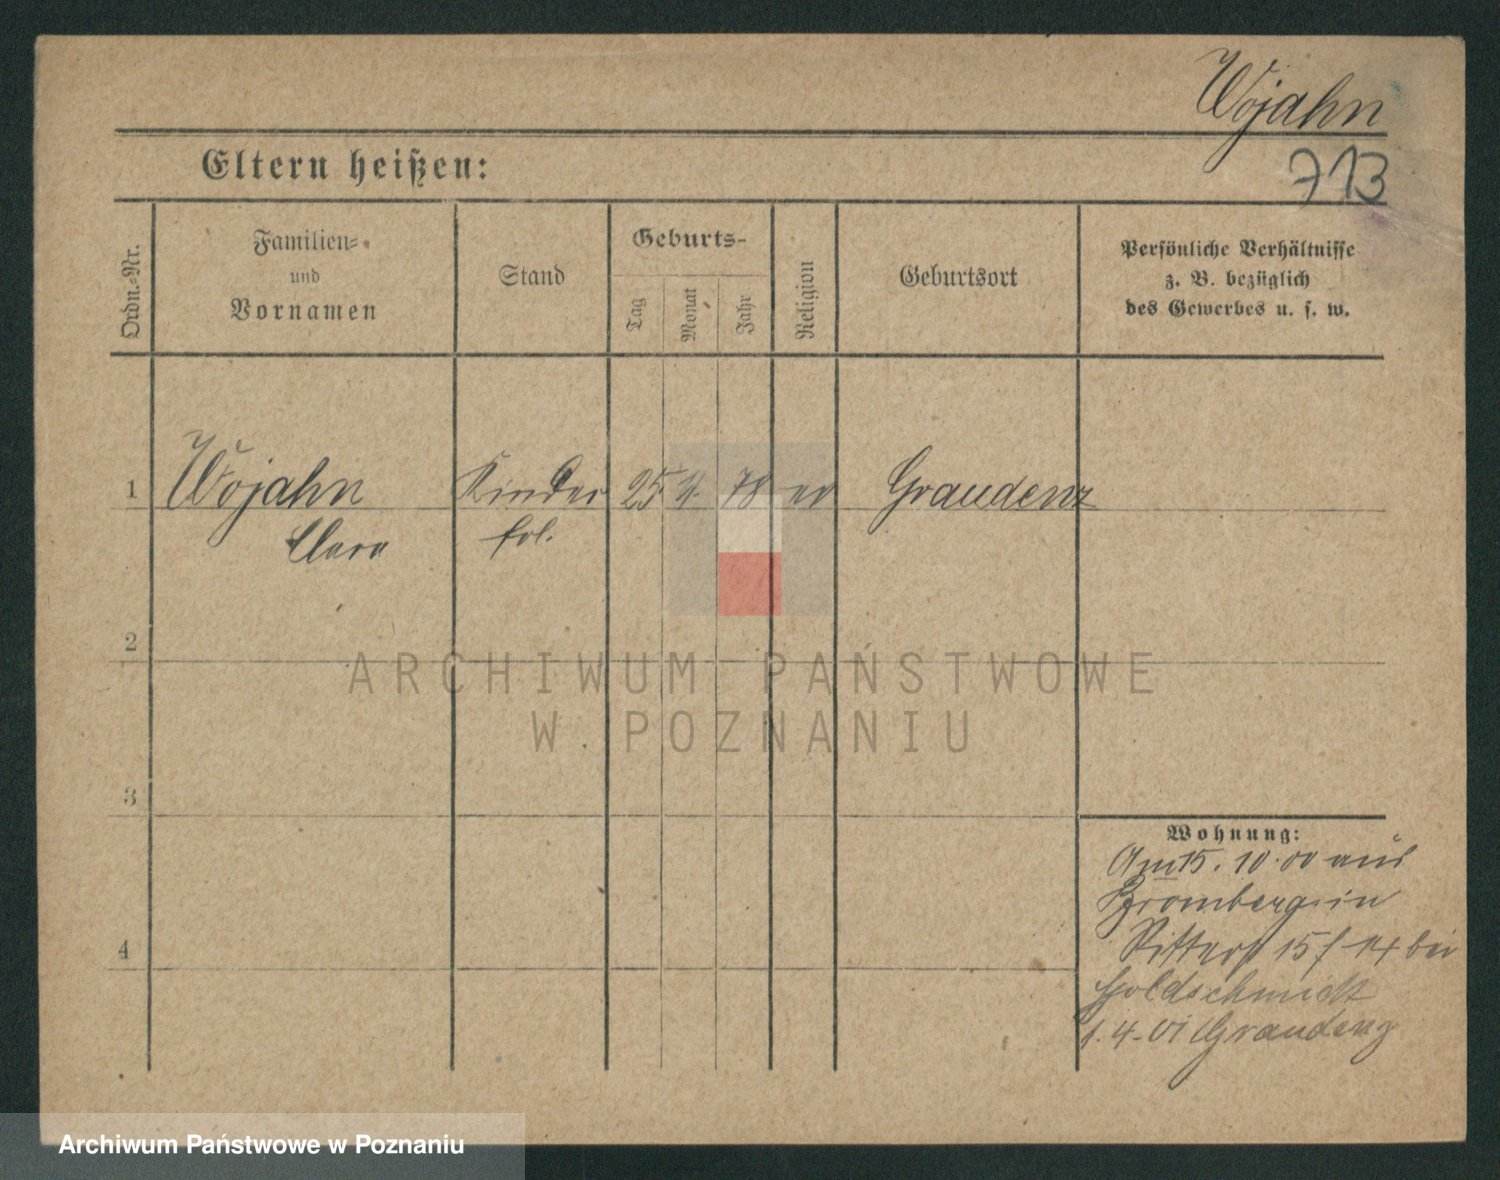 Wojahn
Eltern heißen:
713
Ordn.-Nr.
Familien-
und
Vornamen
Stand
Geburts-
Tag
Monat
Jahr
Religion
Geburtsort
Persönliche Verhältnisse
z. B. bezüglich
des Gewerbes u. s. w.
1
Wojahn
Clara
Kinder
frl.
25
78
ev
Graudenz
2
ARCHIWUM PAŃSTWOWE
W POZNANIU
3
4
Wohnung:
Am 15. 10. 00 aus
Bromberg in
Ritterst 15 bei
Goldschmidt
1. 4. 01 Graudenz
Archiwum Państwowe w Poznaniu